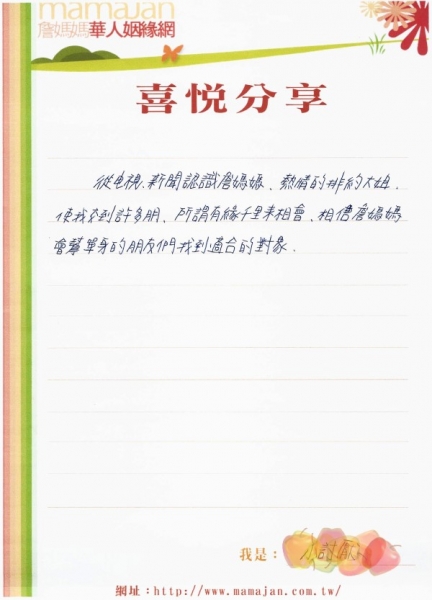 mamajan
詹媽媽華人姻緣網
喜悅分享
從電視、新聞認識詹媽媽、熱情的排約大姐、
使我交到許多朋、所謂有緣千里來相會、相信詹媽媽
會幫單身的朋友們找到適合的對象。
我是：小討
網址：http://www.mamajan.com.tw/